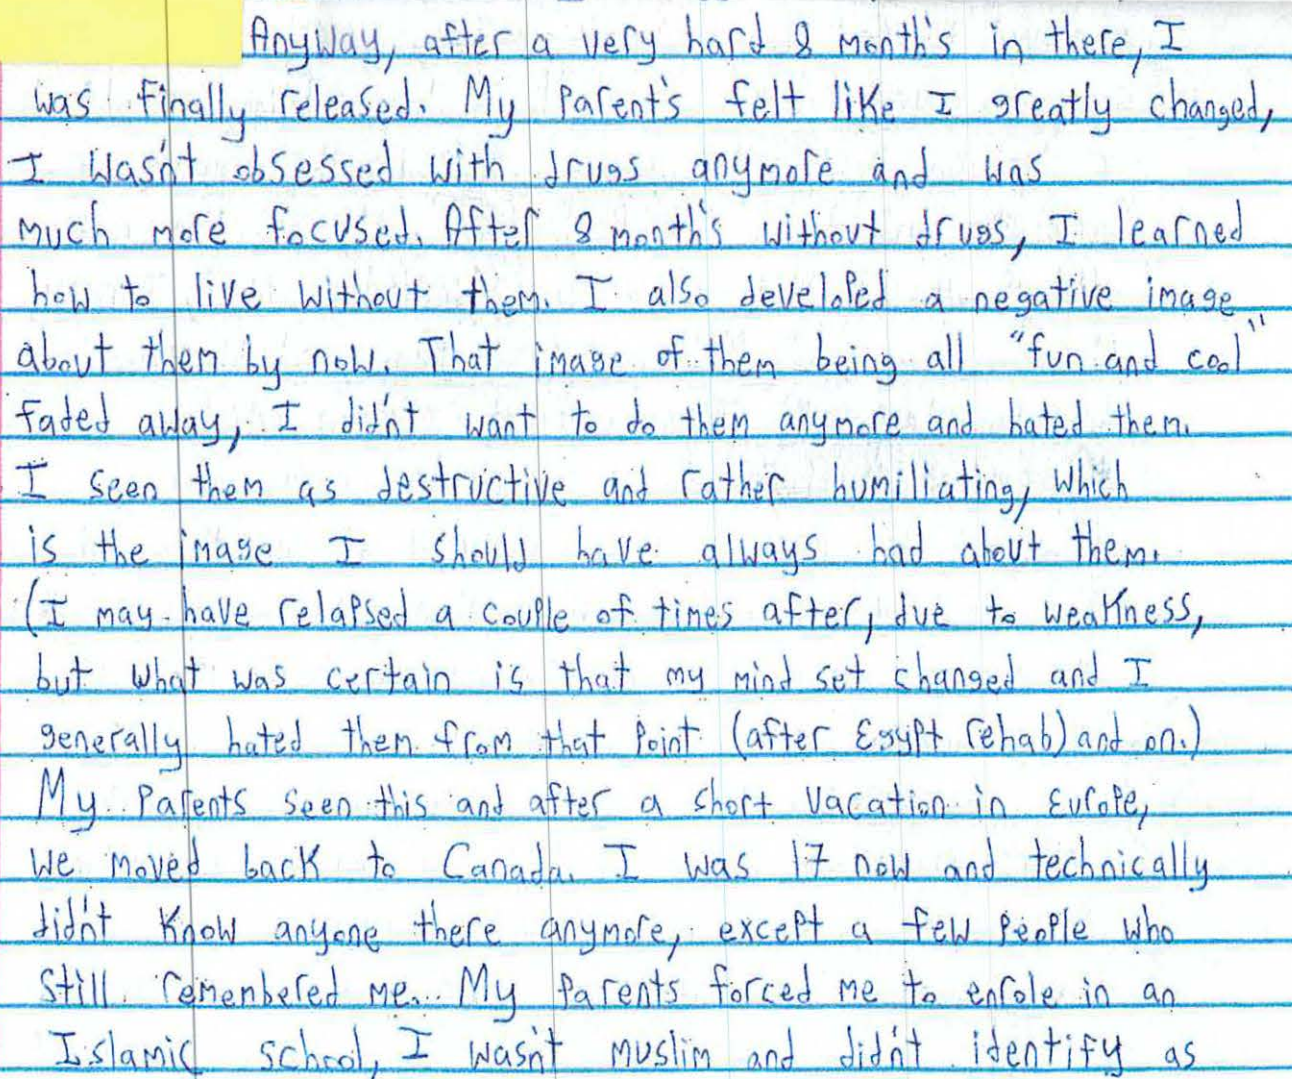 Anyway, after a very hard 8 month's in there, I
was finally released. My Parent's felt like I greatly changed,
I wasn't obsessed with drugs anymore and was
much more focused. After 8 month's without drugs, I learned
how to live without them. I also developed a negative image
about them by now. That image of them being all "fun and cool"
faded away, I didn't want to do them anymore and hated them.
I seen them as destructive and rather humiliating, which
is the image I should have always had about them.
(I may have relapsed a couple of times after, due to weakness,
but what was certain is that my mind set changed and I
generally hated them from that Point (after Egypt rehab) and on.)
My Parents seen this and after a short vacation in Europe,
we moved back to Canada. I was 17 now and technically
didn't know anyone there anymore, except a few people who
still remenbered me. My Parents forced me to enrole in an
Islamic school, I wasn't muslim and didn't identify as